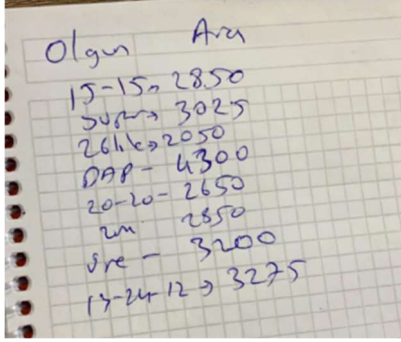 Olgun Ara
15-15 → 2850
Süper → 3025
26lık → 2050
DAP - 4300
20-20 - 2650
2850
Üre - 3200
13-24-12 → 3275